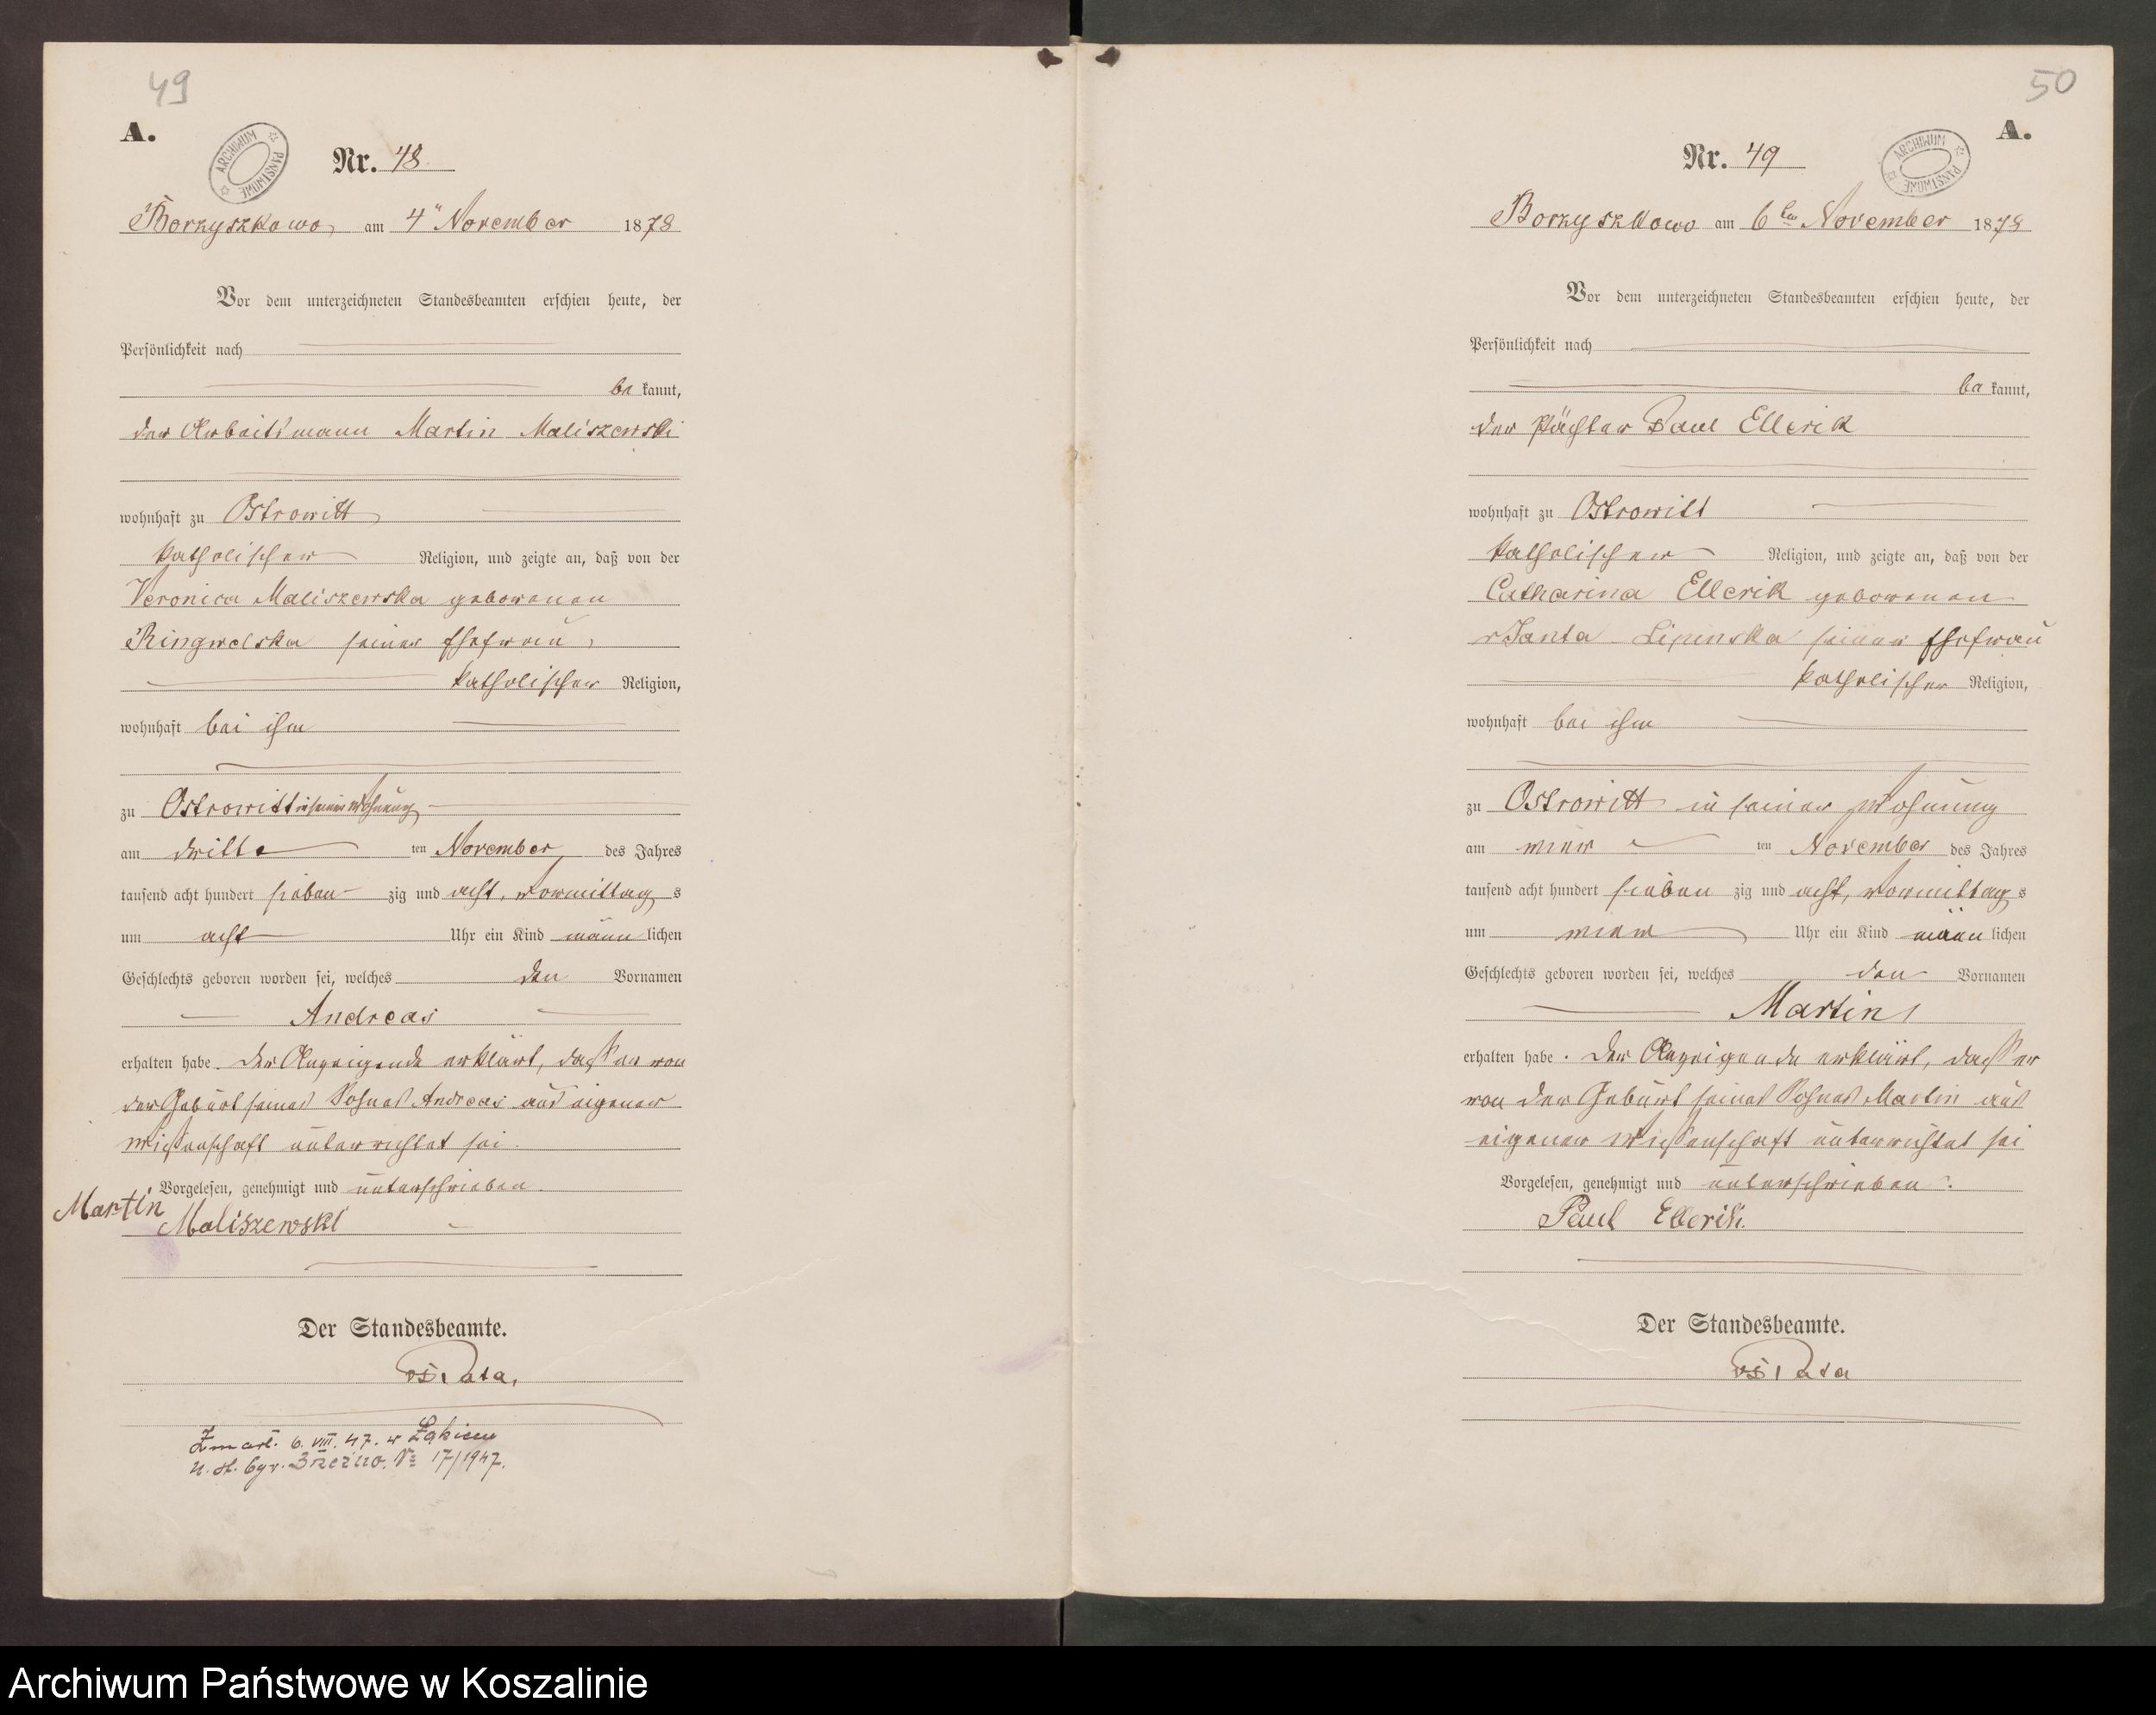 49
A.
ARCHIWUM PAŃSTWOWE
Nr. 48.
Borzyszkowo, am 4" November 1878
Vor dem unterzeichneten Standesbeamten erschien heute, der
Persönlichkeit nach
be kannt,
der Arbeitsmann Martin Maliszewski
wohnhaft zu Ostrowitt
katholischer Religion, und zeigte an, daß von der
Veronica Maliszewska geborenen
Ringwelska seiner Ehefrau,
katholischer Religion,
wohnhaft bei ihm
zu Ostrowitt in seiner Wohnung
am dritte ten November des Jahres
tausend acht hundert sieben zig und acht, Vormittag s
um acht Uhr ein Kind männ lichen
Geschlechts geboren worden sei, welches den Vornamen
Andreas
erhalten habe. Der Anzeigende erklärt, daß er von
der Geburt seines Sohnes Andreas aus eigener
Wißenschaft unterrichtet sei.
Vorgelesen, genehmigt und unterschrieben.
Martin
Maliszewski
Der Standesbeamte.
Zmarł. 6. VIII. 47. w
U. st. cyw. Brzeźno. № 17/1947.
50
A.
ARCHIWUM PAŃSTWOWE
Nr. 49
Borzyszkowo am 6ten November 1878
Vor dem unterzeichneten Standesbeamten erschien heute, der
Persönlichkeit nach
be kannt,
der Pächter Paul Ellerik
wohnhaft zu Ostrowitt
katholischer Religion, und zeigte an, daß von der
Catharina Ellerik geborenen
Janta Lipinska seiner Ehefrau
katholischer Religion,
wohnhaft bei ihm
zu Ostrowitt in seiner Wohnung
am vier ten November des Jahres
tausend acht hundert sieben zig und acht, Vormittag s
um vier Uhr ein Kind männ lichen
Geschlechts geboren worden sei, welches den Vornamen
Martin
erhalten habe. Der Anzeigende erklärt, daß er
von der Geburt seines Sohnes Martin aus
eigener Wißenschaft unterrichtet sei
Vorgelesen, genehmigt und unterschrieben.
Paul Ellerik.
Der Standesbeamte.
Archiwum Państwowe w Koszalinie